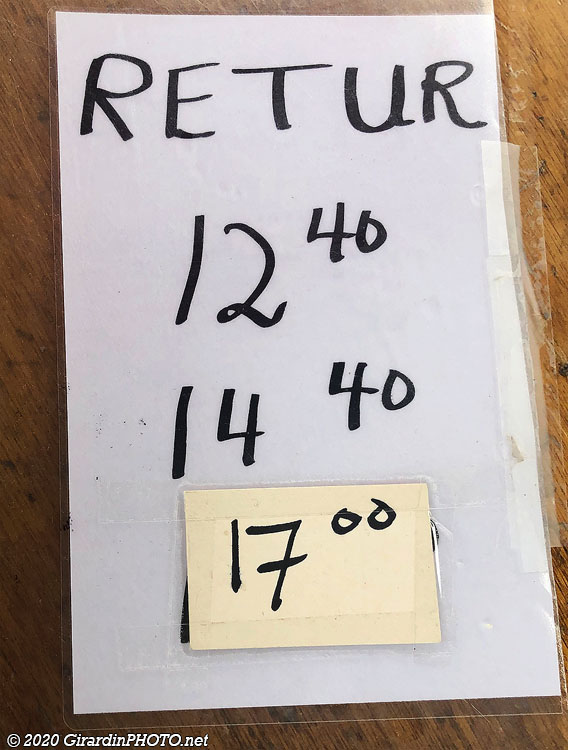 RETUR
12 40
14 40
17 00
© 2020 GirardinPHOTO.net